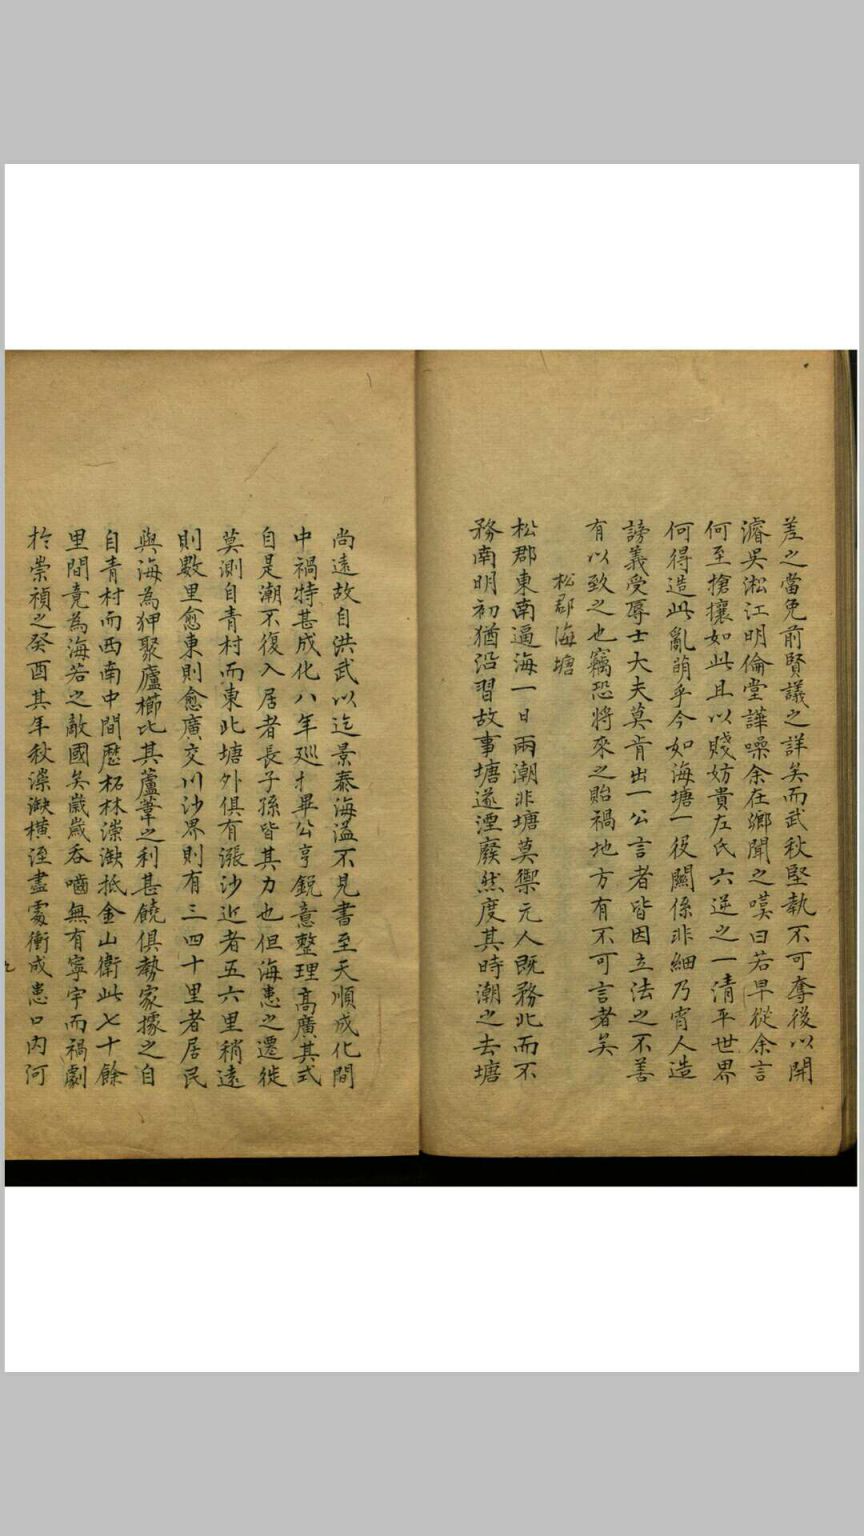 差之當免前賢議之詳矣而武秋堅執不可奪後以開
濬吳淞江明倫堂譁噪余在鄉聞之嘆曰若早從余言
何至搶攘如此且以賤妨貴左氏六逆之一清平世界
何得造此亂萌乎今如海塘一役關係非細乃宵人造
謗義受辱士大夫莫肯出一公言者皆因立法之不善
有以致之也竊恐將來之貽禍地方有不可言者矣
松郡海塘
松郡東南逼海一日兩潮非塘莫禦元人既務北而不
務南明初猶沿習故事塘遂湮廢然度其時潮之去塘
尚遠故自洪武以迄景泰海溢不見書至天順成化間
中禍特甚成化八年巡撫畢公亨銳意整理高廣其式
自是潮不復入居者長子孫皆其力也但海患之遷徙
莫測自青村而東北塘外俱有漲沙近者五六里稍遠
則數里愈東則愈廣交川沙界則有三四十里者居民
與海為狎聚廬櫛比其蘆葦之利甚饒俱勢家據之自
自青村而西南中間歷柘林漴缺抵金山衛此七十餘
里間竟為海若之敵國矣歲歲吞嚙無有寧宇而禍劇
於崇禎之癸酉其年秋漴缺橫溼盡處衝成患口內河